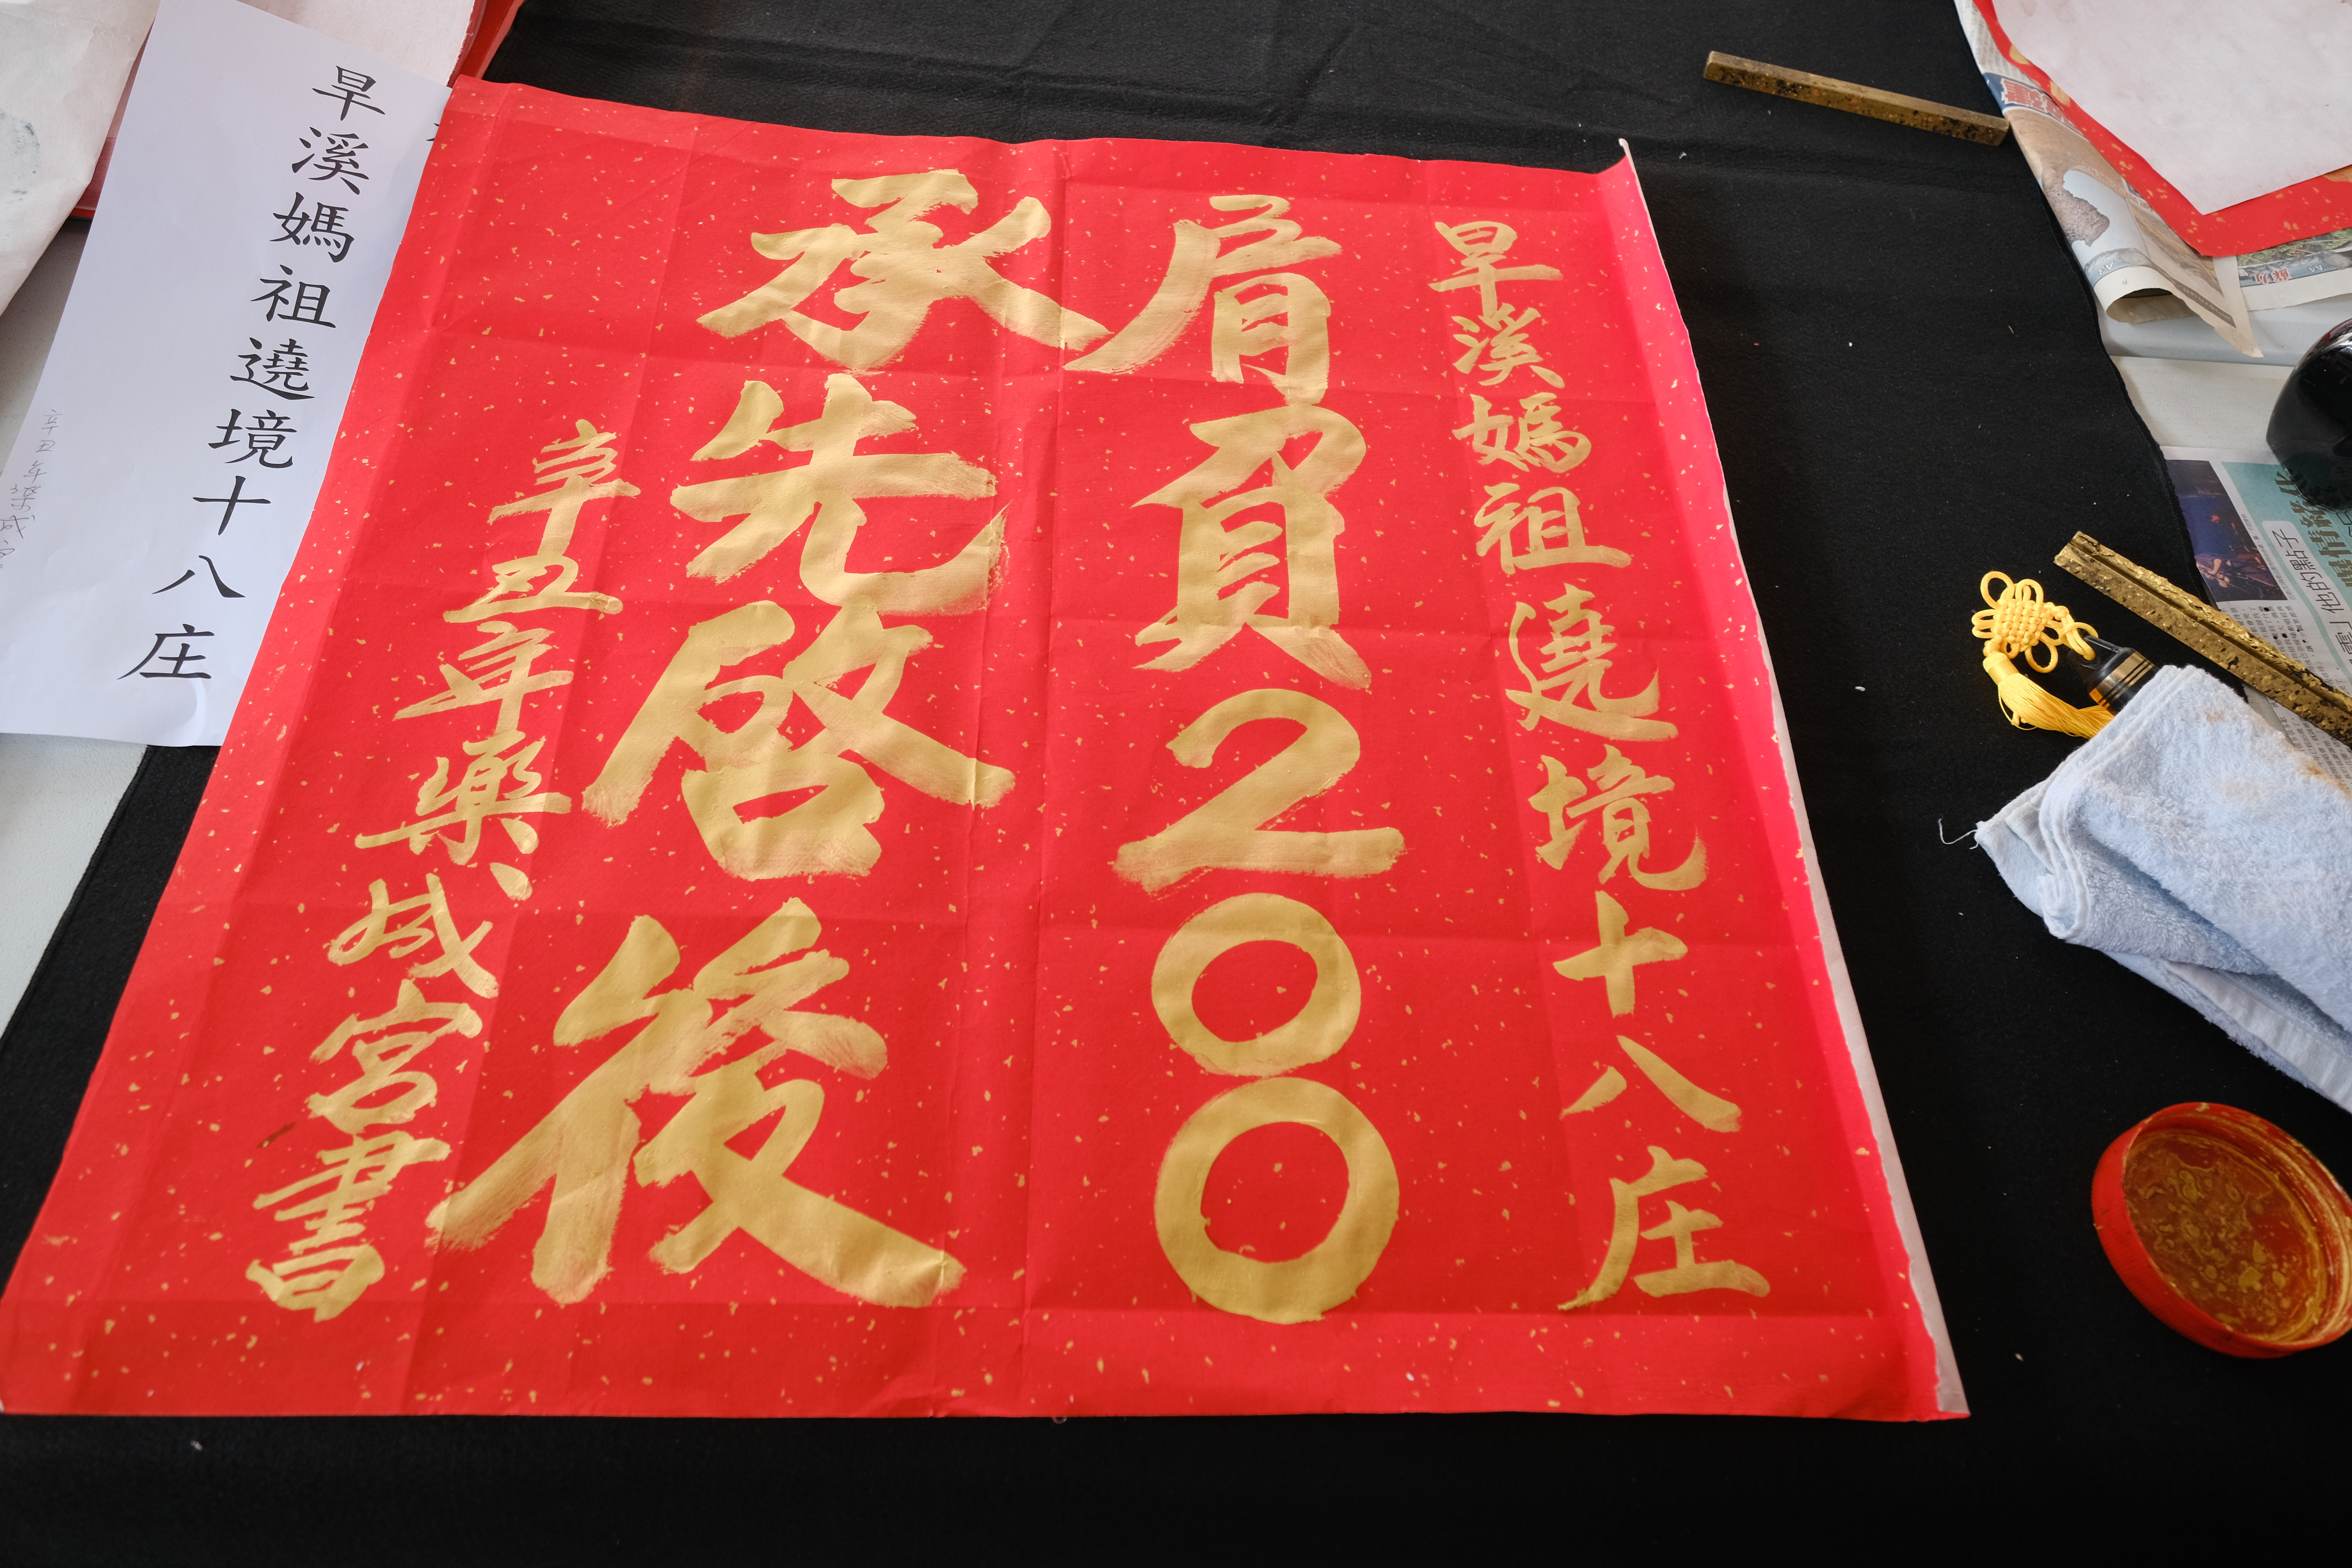 旱溪媽祖遶境十八庄
肩負200
承先啓後
辛丑年樂成宮書
旱溪媽祖遶境十八庄
辛丑年樂成